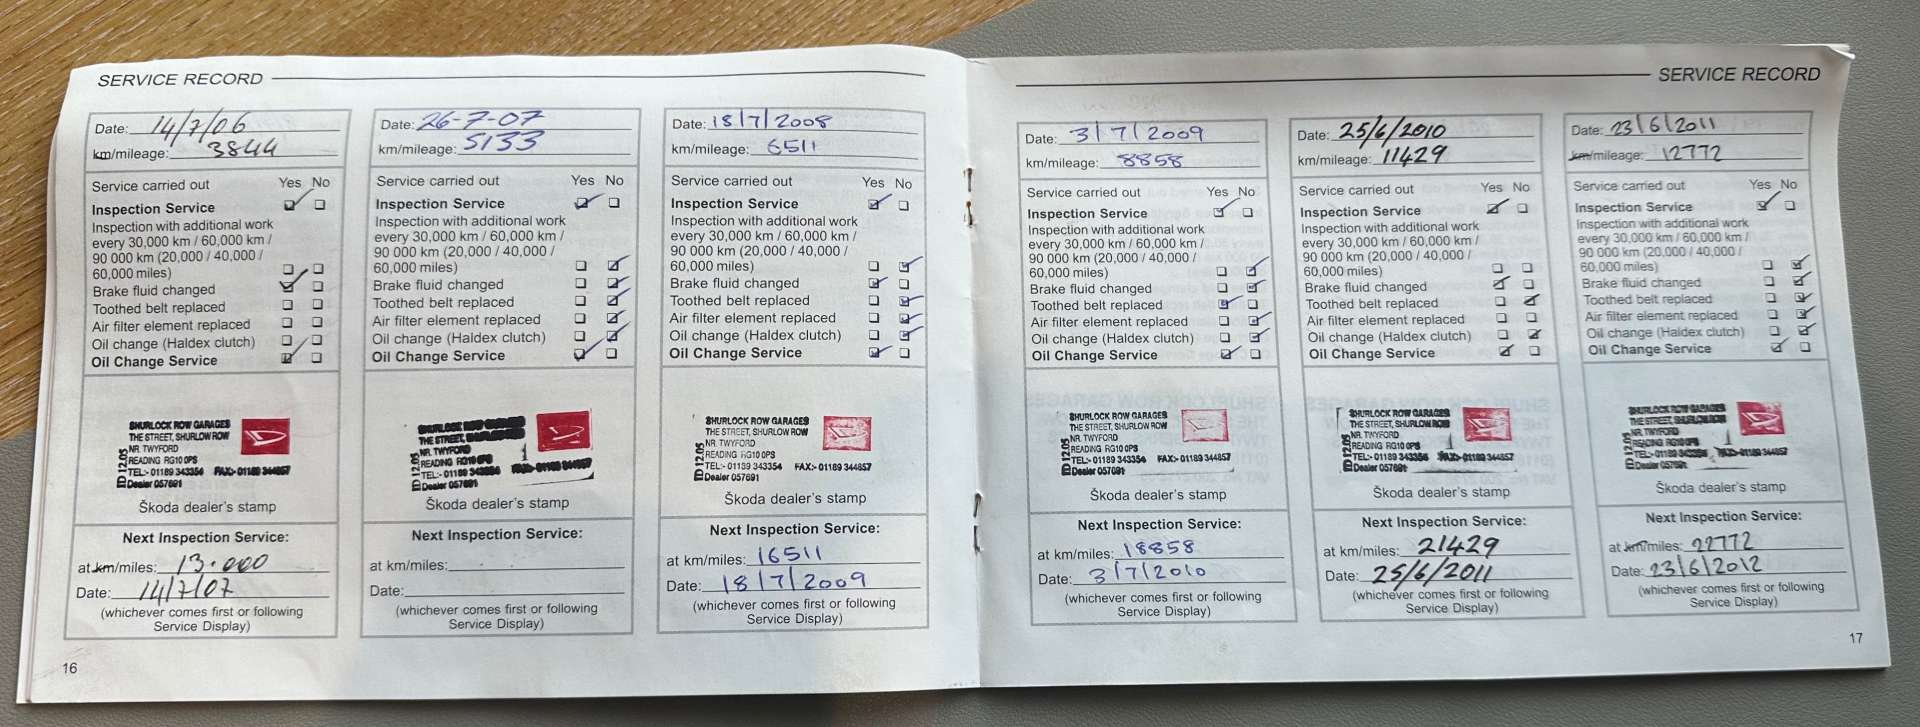 SERVICE RECORD
Date: 14/7/06
km/mileage: 3844
Service carried out Yes No
Inspection Service
Inspection with additional work
every 30,000 km / 60,000 km /
90 000 km (20,000 / 40,000 /
60,000 miles)
Brake fluid changed
Toothed belt replaced
Air filter element replaced
Oil change (Haldex clutch)
Oil Change Service
SHURLOCK ROW GARAGES
THE STREET, SHURLOW ROW
NR. TWYFORD
READING RG10 0PS
TEL:- 01189 343354 FAX:- 01189 344857
Dealer 057691
ID 12.05
Škoda dealer's stamp
Next Inspection Service:
at km/miles: 13.000
Date: 14/7/07
(whichever comes first or following
Service Display)
16
Date: 26-7-07
km/mileage: 5133
Service carried out Yes No
Inspection Service
Inspection with additional work
every 30,000 km / 60,000 km /
90 000 km (20,000 / 40,000 /
60,000 miles)
Brake fluid changed
Toothed belt replaced
Air filter element replaced
Oil change (Haldex clutch)
Oil Change Service
SHURLOCK ROW GARAGES
THE STREET, SHURLOW ROW
NR. TWYFORD
READING RG10 0PS
TEL:- 01189 343354 FAX:- 01189 344857
Dealer 057691
ID 12.05
Škoda dealer's stamp
Next Inspection Service:
at km/miles:
Date:
(whichever comes first or following
Service Display)
Date: 18/7/2008
km/mileage: 6511
Service carried out Yes No
Inspection Service
Inspection with additional work
every 30,000 km / 60,000 km /
90 000 km (20,000 / 40,000 /
60,000 miles)
Brake fluid changed
Toothed belt replaced
Air filter element replaced
Oil change (Haldex clutch)
Oil Change Service
SHURLOCK ROW GARAGES
THE STREET, SHURLOW ROW
NR. TWYFORD
READING RG10 0PS
TEL:- 01189 343354 FAX:- 01189 344857
Dealer 057691
ID 12.05
Škoda dealer's stamp
Next Inspection Service:
at km/miles: 16511
Date: 18/7/2009
(whichever comes first or following
Service Display)
SERVICE RECORD
Date: 3/7/2009
km/mileage: 8858
Service carried out Yes No
Inspection Service
Inspection with additional work
every 30,000 km / 60,000 km /
90 000 km (20,000 / 40,000 /
60,000 miles)
Brake fluid changed
Toothed belt replaced
Air filter element replaced
Oil change (Haldex clutch)
Oil Change Service
SHURLOCK ROW GARAGES
THE STREET, SHURLOW ROW
NR. TWYFORD
READING RG10 0PS
TEL:- 01189 343354 FAX:- 01189 344857
Dealer 057691
ID 12.05
Škoda dealer's stamp
Next Inspection Service:
at km/miles: 18858
Date: 3/7/2010
(whichever comes first or following
Service Display)
Date: 25/6/2010
km/mileage: 11429
Service carried out Yes No
Inspection Service
Inspection with additional work
every 30,000 km / 60,000 km /
90 000 km (20,000 / 40,000 /
60,000 miles)
Brake fluid changed
Toothed belt replaced
Air filter element replaced
Oil change (Haldex clutch)
Oil Change Service
SHURLOCK ROW GARAGES
THE STREET, SHURLOW ROW
NR. TWYFORD
READING RG10 0PS
TEL:- 01189 343354 FAX:- 01189 344857
Dealer 057691
ID 12.05
Škoda dealer's stamp
Next Inspection Service:
at km/miles: 21429
Date: 25/6/2011
(whichever comes first or following
Service Display)
Date: 23/6/2011
km/mileage: 12772
Service carried out Yes No
Inspection Service
Inspection with additional work
every 30,000 km / 60,000 km /
90 000 km (20,000 / 40,000 /
60,000 miles)
Brake fluid changed
Toothed belt replaced
Air filter element replaced
Oil change (Haldex clutch)
Oil Change Service
SHURLOCK ROW GARAGES
THE STREET, SHURLOW ROW
NR. TWYFORD
READING RG10 0PS
TEL:- 01189 343354 FAX:- 01189 344857
Dealer 057691
ID 12.05
Škoda dealer's stamp
Next Inspection Service:
at km/miles: 22772
Date: 23/6/2012
(whichever comes first or following
Service Display)
17